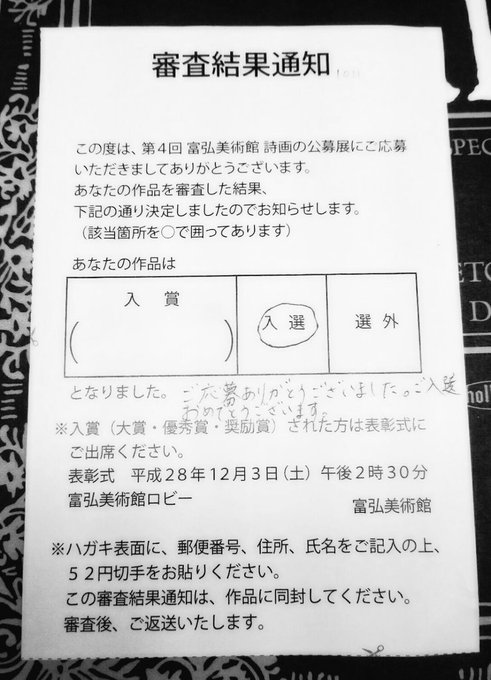 審査結果通知
この度は、第4回 富弘美術館 詩画の公募展にご応募
いただきましてありがとうございます。
あなたの作品を審査した結果、
下記の通り決定しましたのでお知らせします。
（該当箇所を○で囲ってあります）
あなたの作品は
入 賞
（ ）
入 選
選 外
となりました。 ご応募ありがとうございました。ご入選
おめでとうございます。
※入賞（大賞・優秀賞・奨励賞）された方は表彰式に
ご出席ください。
表彰式 平成28年12月3日（土）午後2時30分
富弘美術館ロビー
富弘美術館
※ハガキ表面に、郵便番号、住所、氏名をご記入の上、
52円切手をお貼りください。
この審査結果通知は、作品に同封してください。
審査後、ご返送いたします。